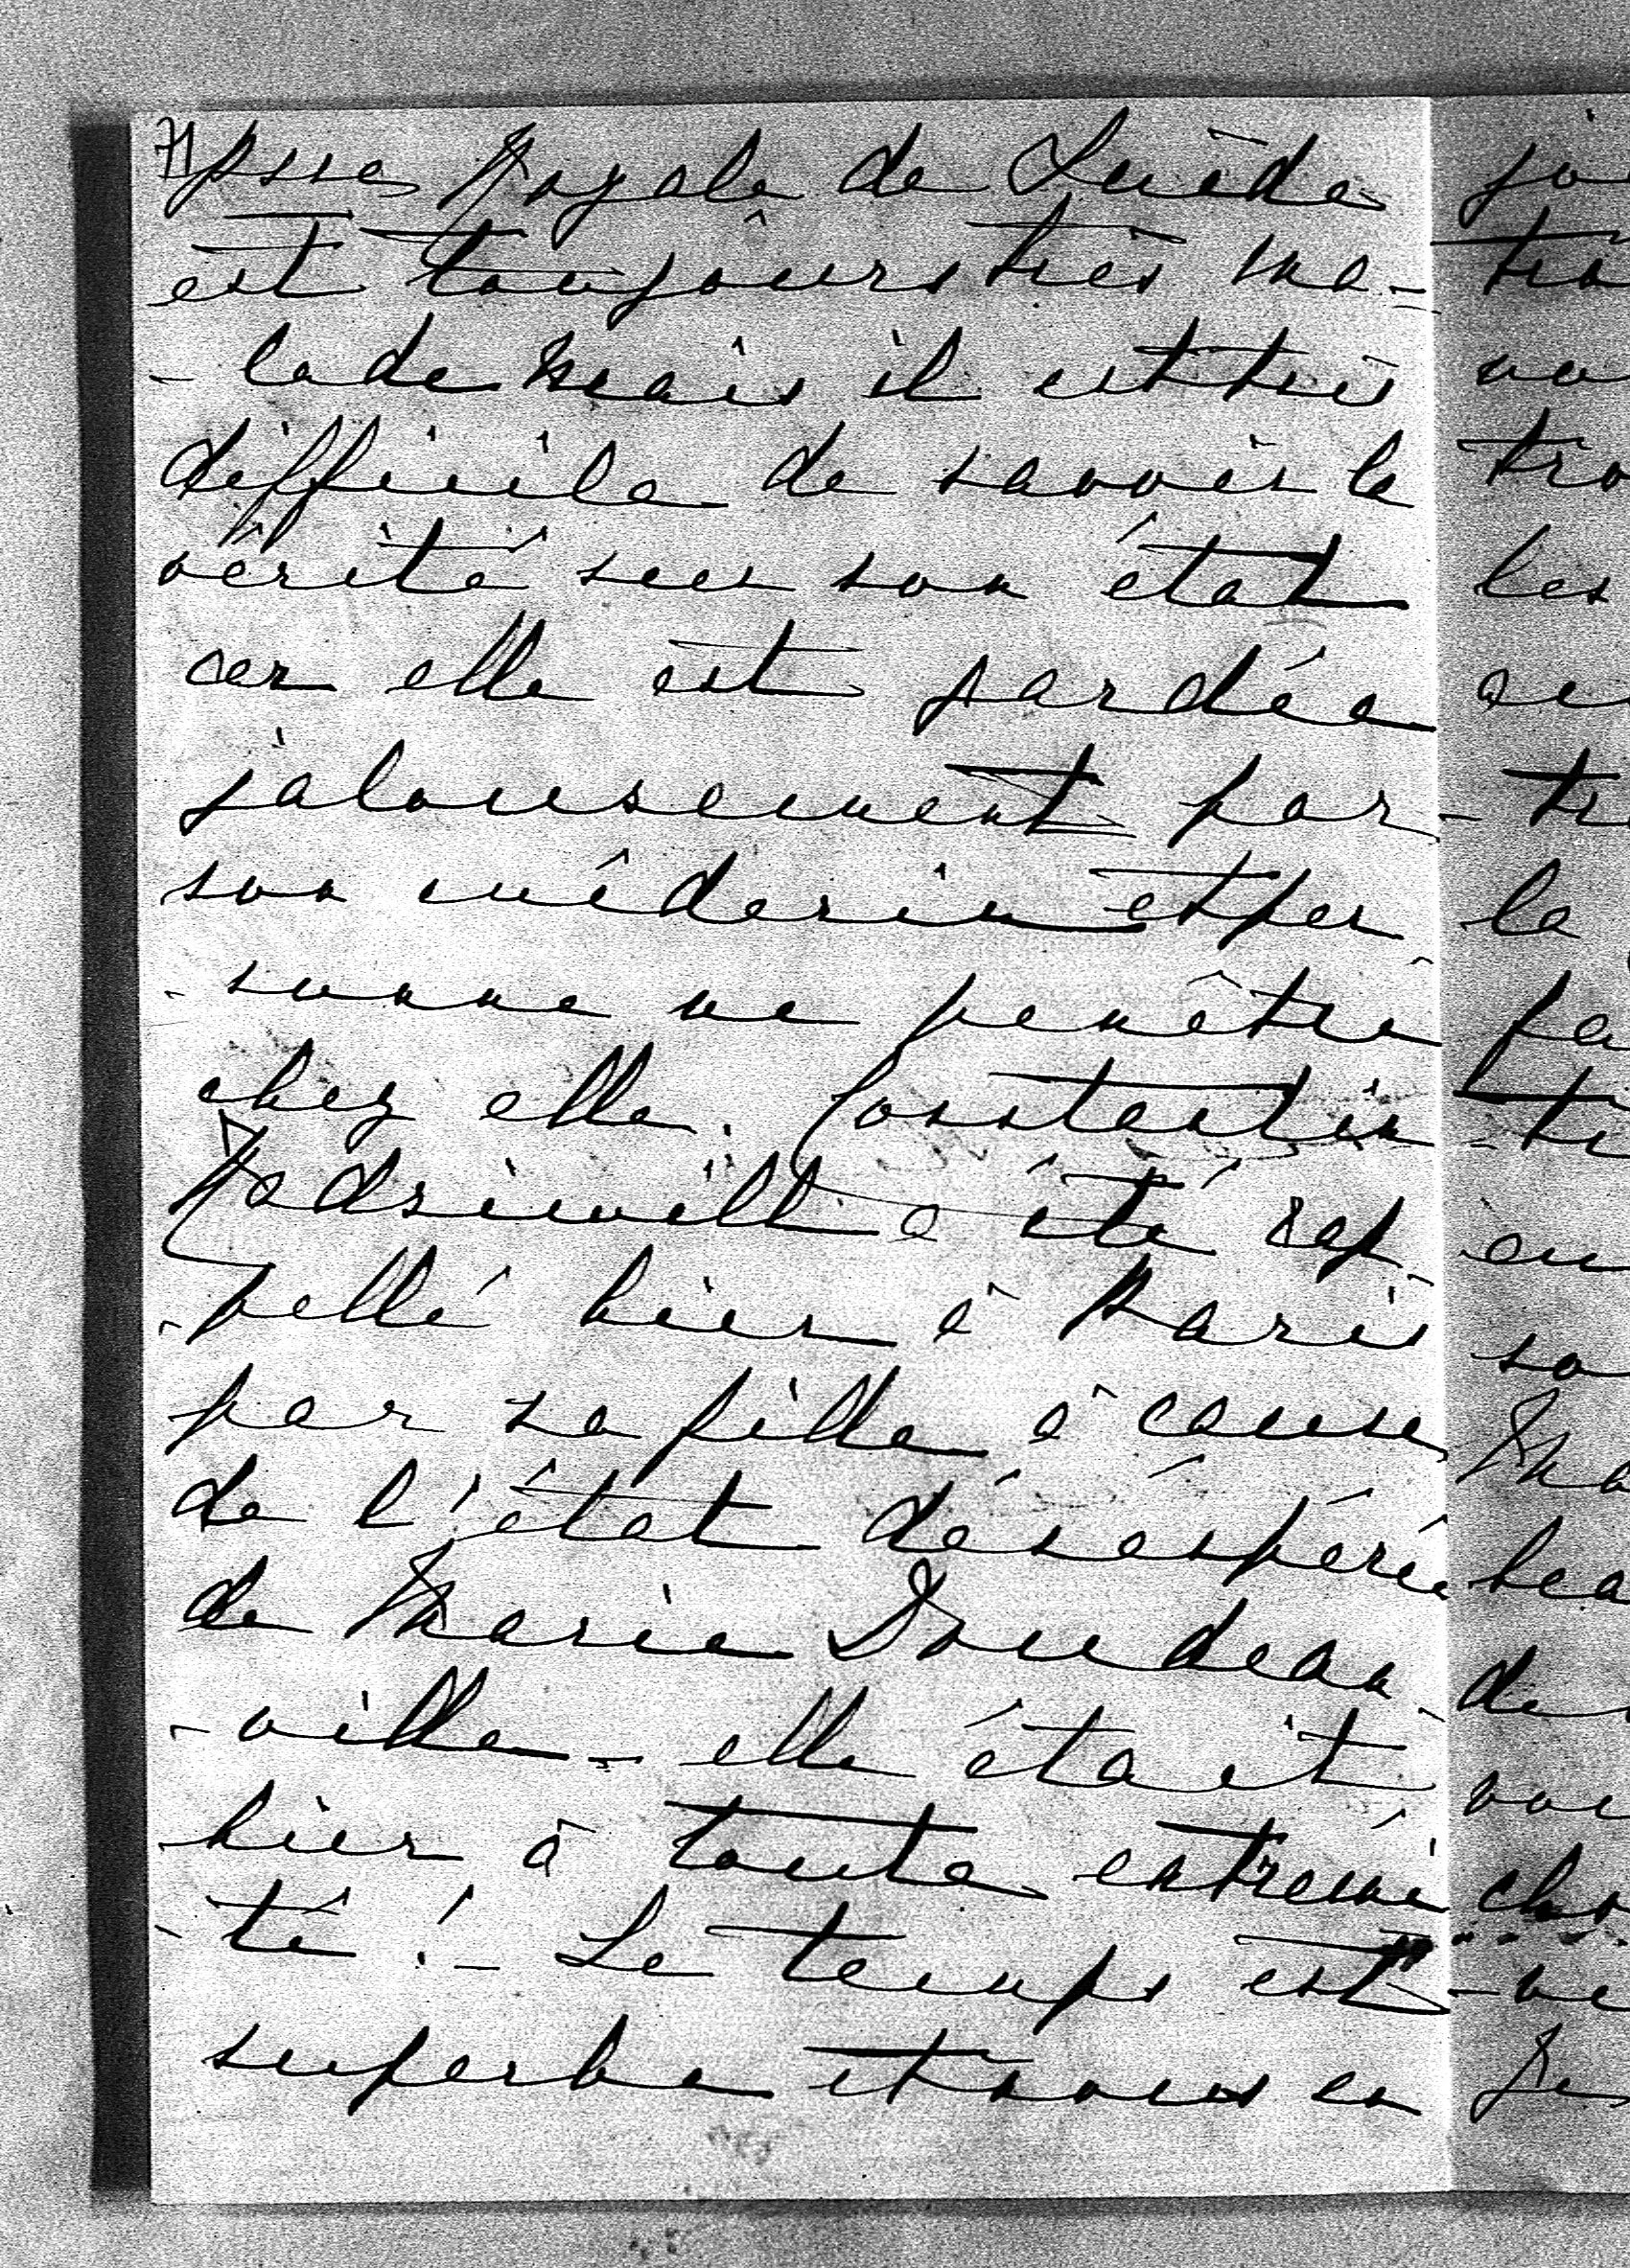 Psse Royale de Suède
est toujours très ma-
-lade mais il est très
difficile de savoir la
vérité sur son état
car elle est gardée
jalousement par
son médecin et per
-sonne ne penètre
chez elle. Constantin
Radziwill a été rap
-pellé hier à Paris
par sa fille à cause
de l'état désespéré
de Marie Doudeau
-ville - elle était
hier à toute extremi
-té ! - Le temps est
superbe et nous en